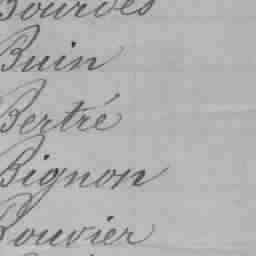 Bourdes
Buin
Bertré
Bignon
Bouvier